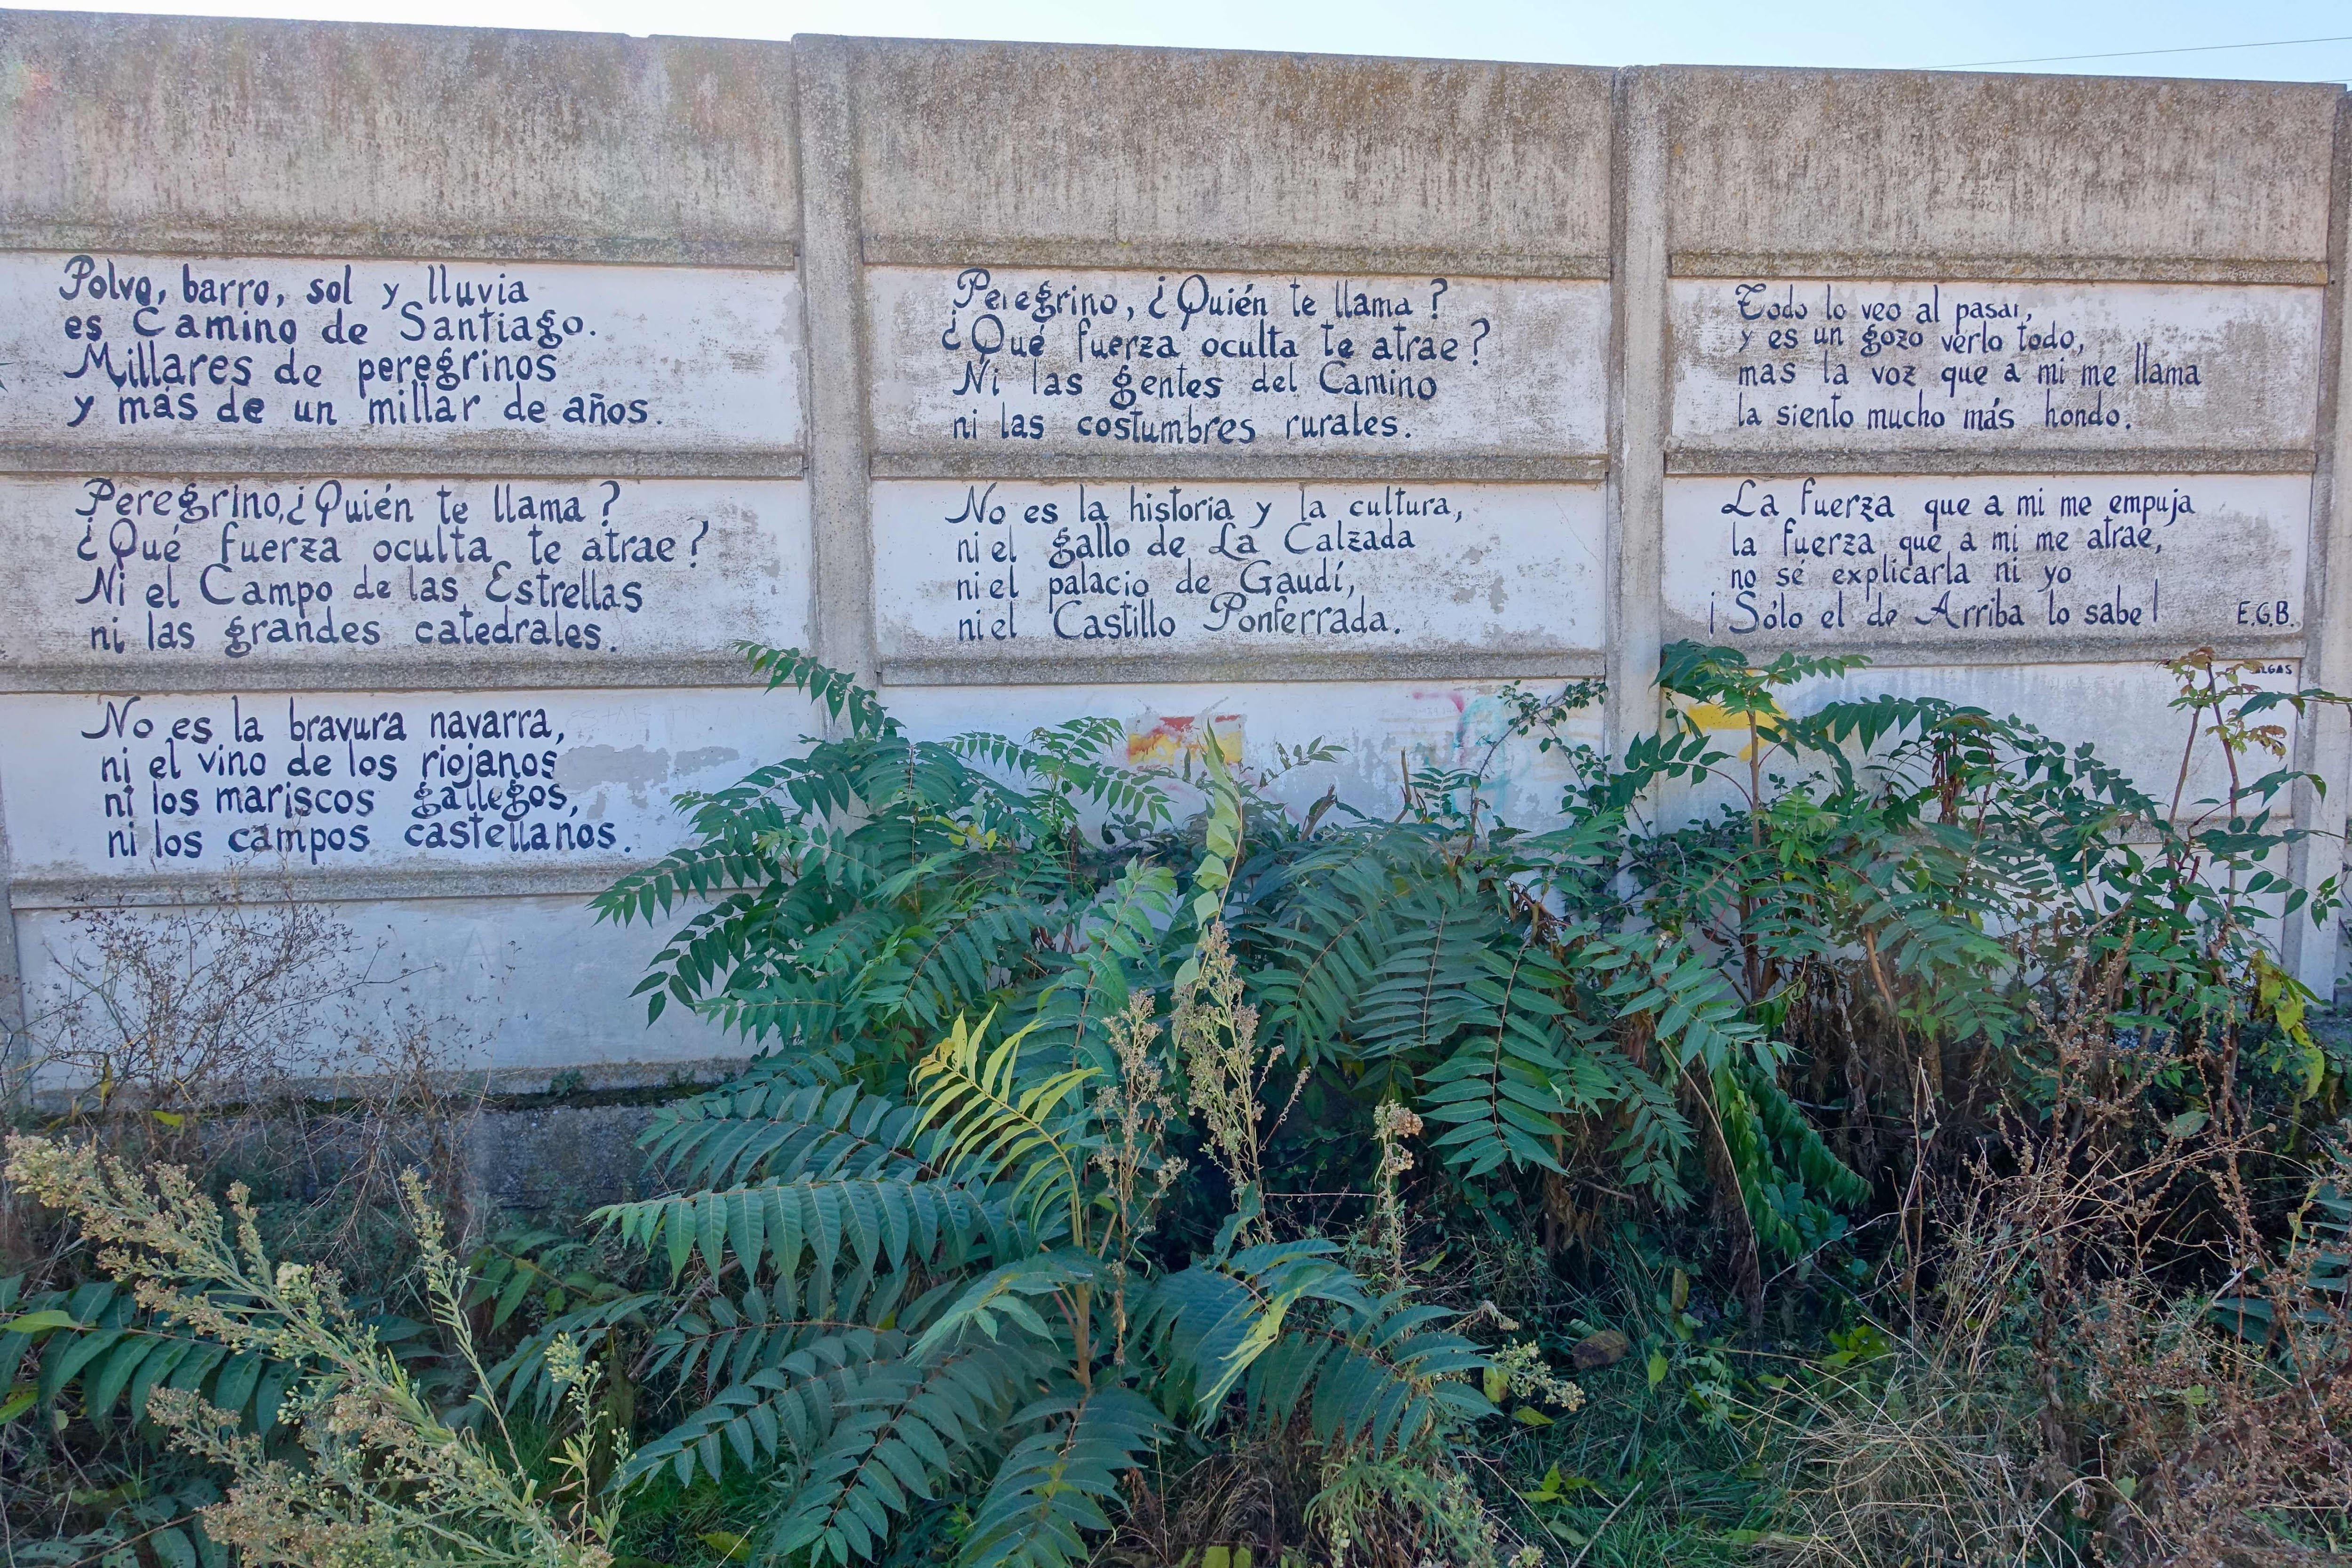 Polvo, barro, sol y lluvia
es Camino de Santiago.
Millares de peregrinos
y más de un millar de años.
Peregrino, ¿Quién te llama?
¿Qué fuerza oculta te atrae?
Ni el Campo de las Estrellas
ni las grandes catedrales.
No es la bravura navarra,
ni el vino de los riojanos
ni los mariscos gallegos,
ni los campos castellanos.
Peregrino, ¿Quién te llama?
¿Qué fuerza oculta te atrae?
Ni las gentes del Camino
ni las costumbres rurales.
No es la historia y la cultura,
ni el gallo de La Calzada
ni el palacio de Gaudí,
ni el Castillo Ponferrada.
Todo lo veo al pasar,
y es un gozo verlo todo,
mas la voz que a mi me llama
la siento mucho más hondo.
La fuerza que a mi me empuja
la fuerza que a mi me atrae,
no sé explicarla ni yo
¡Sólo el de Arriba lo sabe!
E.G.B.